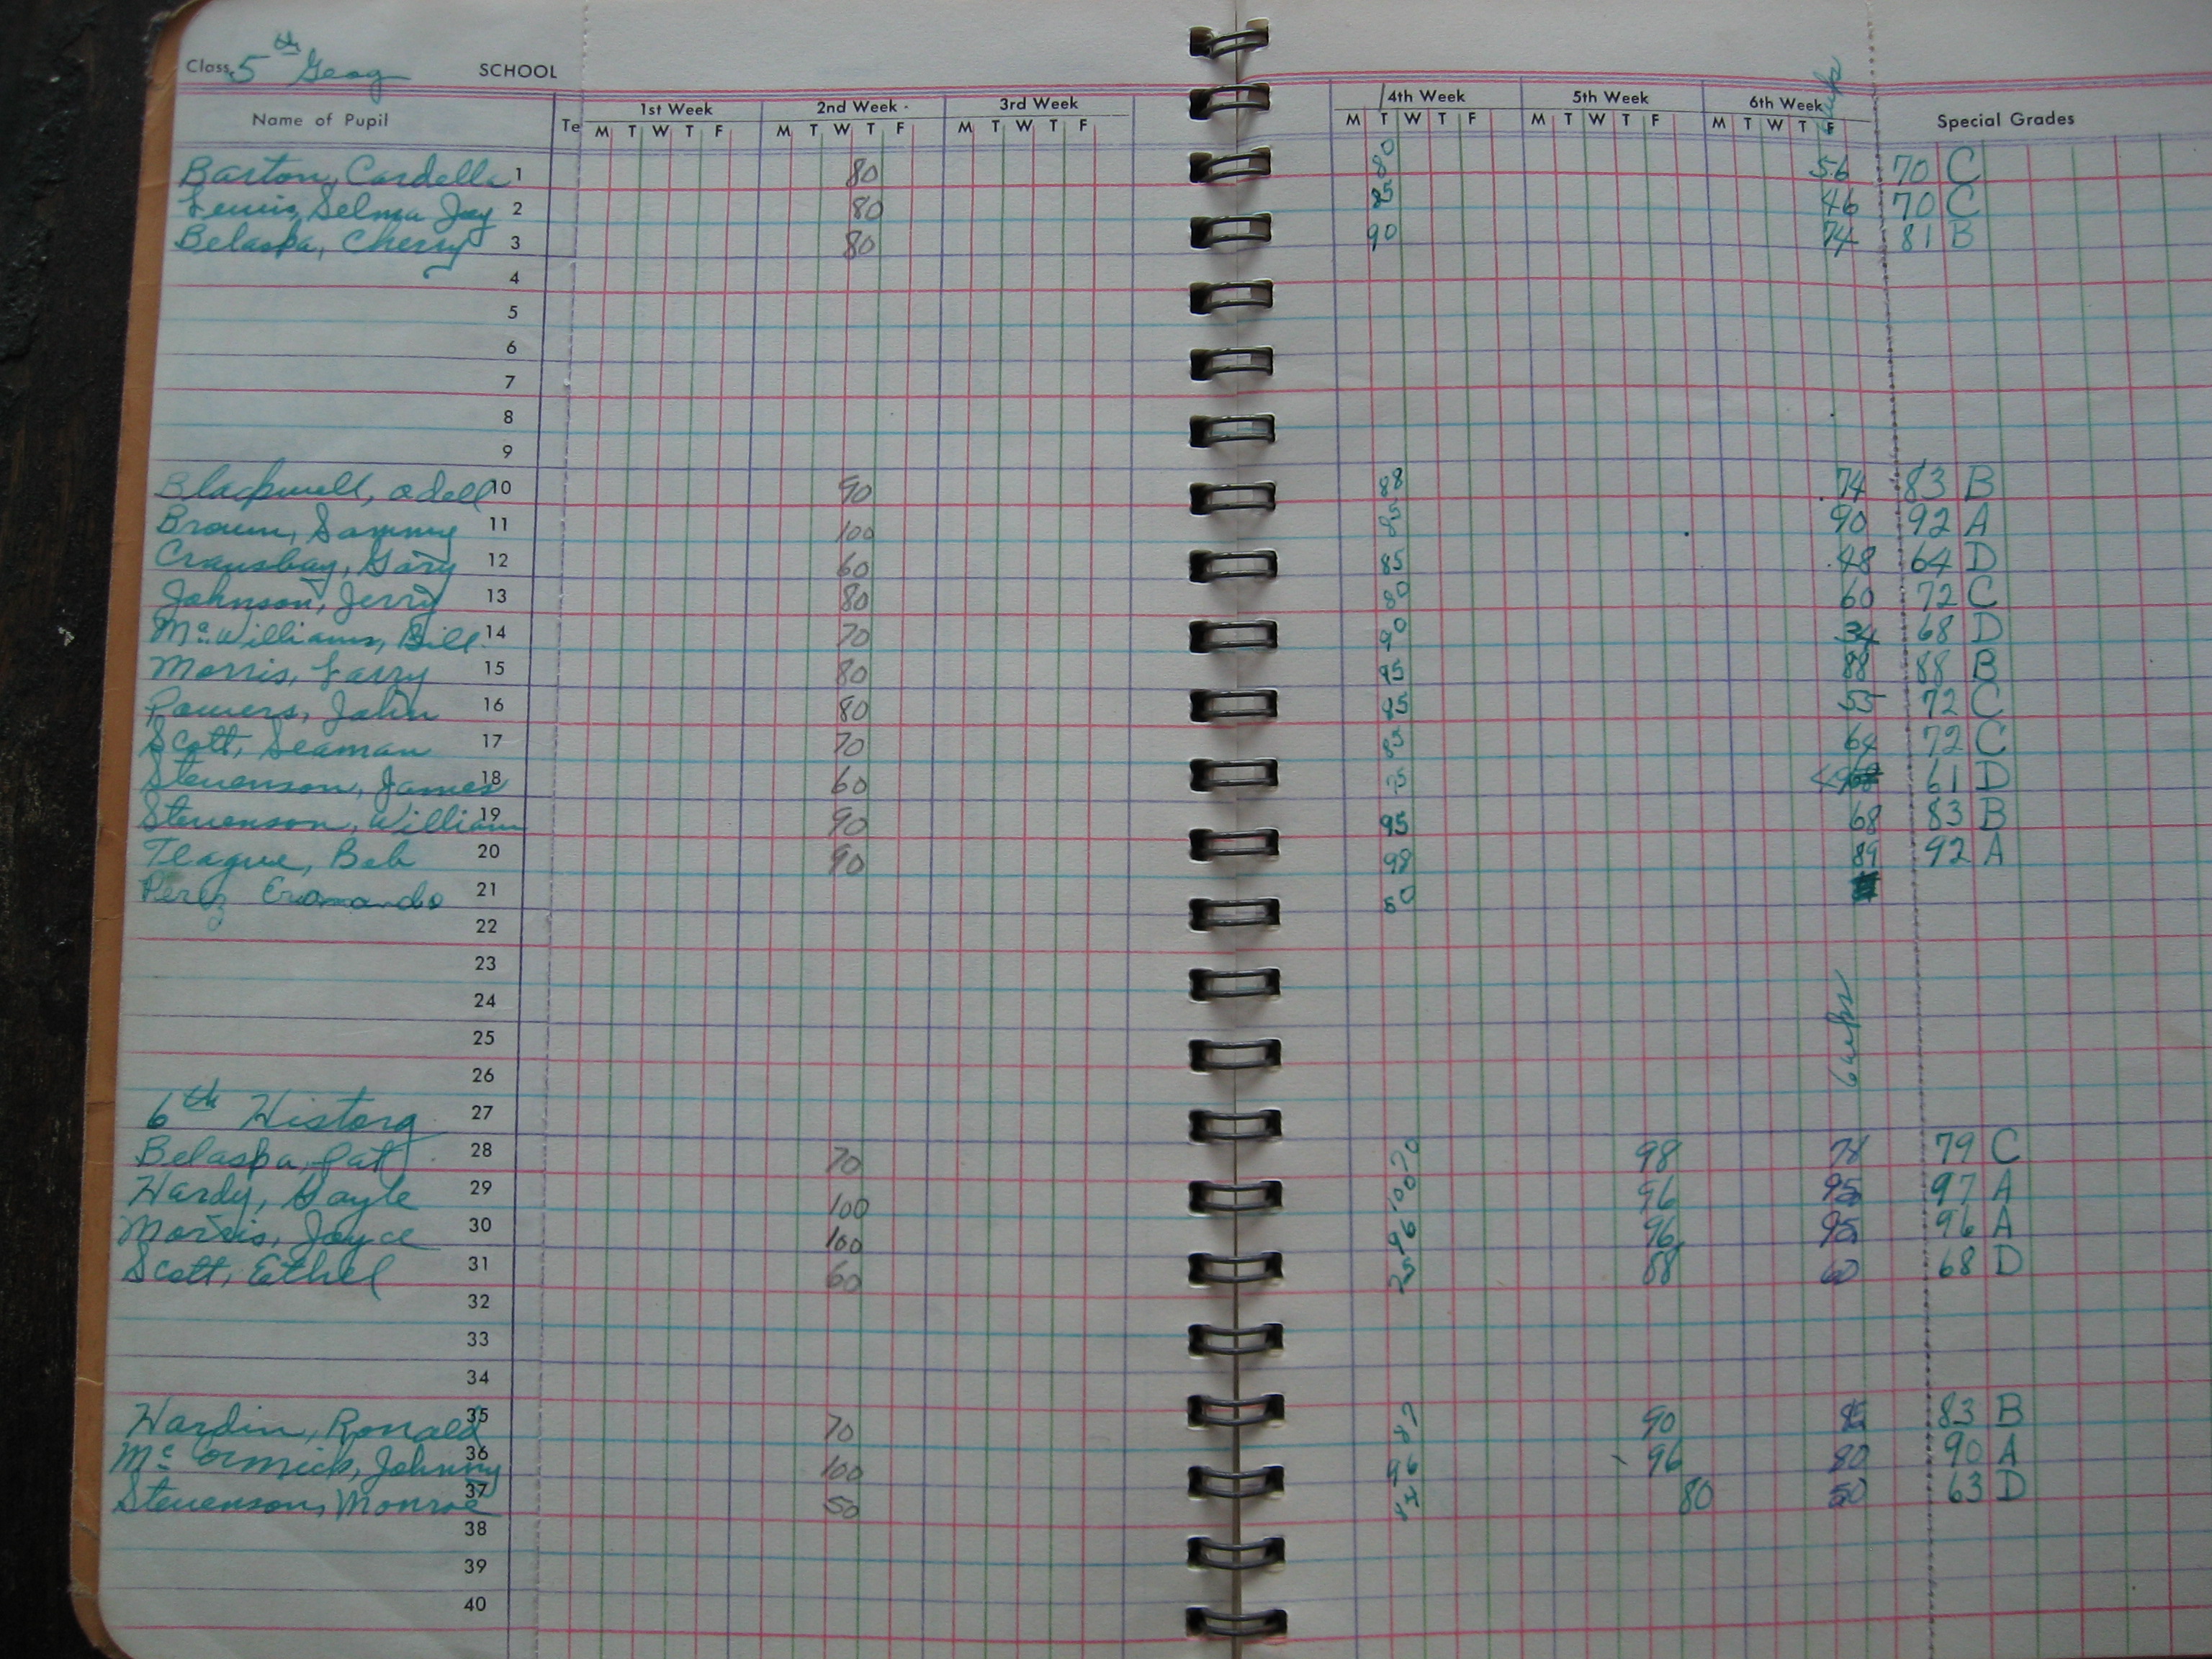 Class 5th Geog SCHOOL
Name of Pupil Te 1st Week 2nd Week 3rd Week 4th Week 5th Week 6th Week Special Grades
M T W T F M T W T F M T W T F M T W T F M T W T F M T W T F
Barton, Cardella 1 80 80 56 70 C
Lewis, Selma Jay 2 80 85 46 70 C
Belaspa, Cherry 3 80 90 74 81 B
4
5
6
7
8
9
Blackwell, Odell 10 90 88 74 83 B
Brown, Sammy 11 100 85 90 92 A
Cransbay, Gary 12 60 85 48 64 D
Johnson, Jerry 13 80 80 60 72 C
Mc Williams, Bill 14 70 90 34 68 D
Morris, Larry 15 80 95 88 88 B
Powers, John 16 80 85 55 72 C
Scott, Seaman 17 70 85 64 72 C
Stevenson, James 18 60 61 D
Stevenson, William 19 90 95 68 83 B
Teague, Bob 20 90 98 89 92 A
Perez Eromando 21 50
22
23
24
25
26 6 wks
6th History 27
Belaspa, Pat 28 70 70 98 78 79 C
Hardy, Gayle 29 100 100 96 95 97 A
Morris, Joyce 30 100 96 96 95 96 A
Scott, Ethel 31 60 75 88 60 68 D
32
33
34
Hardin, Ronald 35 70 87 90 85 83 B
Mc Cormick, Johnny 36 100 96 96 80 90 A
Stevenson, Monroe 37 50 80 50 63 D
38
39
40